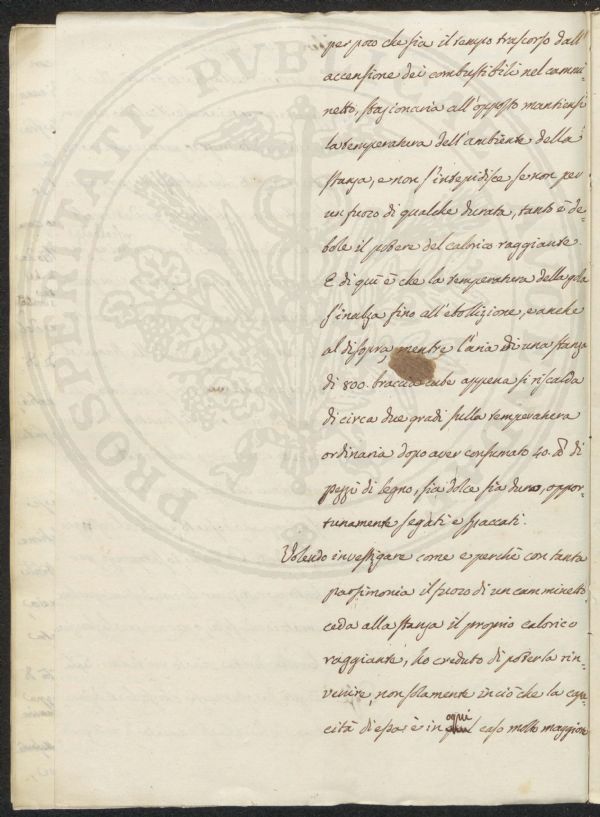 per poco che sia il tempo trascorso dall'
accensione dei combustibili nel cammi-
netto, stazionaria all'opposto mantiensi
la temperatura dell'ambiente della
stanza, e non s'intepidisce se non per
un fuoco di qualche durata, tanto è de-
bole il potere del calorico raggiante.
E di quì è che la temperatura della gola
s'inalza fino all'ebollizione, e anche
al disopra, mentre l'aria di una stanza
di 800. braccia cube appena si riscalda
di circa due gradi sulla temperatura
ordinaria dopo aver consumato 40. di
pezzi di legno, sia dolce sia duro, oppor-
tunamente segati e spaccati.
Volendo investigare come e perchè con tanta
parsimonia il fuoco di un camminetto
ceda alla stanza il proprio calorico
raggiante, ho creduto di poterla rin-
venire, non solamente in ciò che la capa-
cità di essa è in ogni caso molto maggiore
PROSPERITATI PVBLICAE